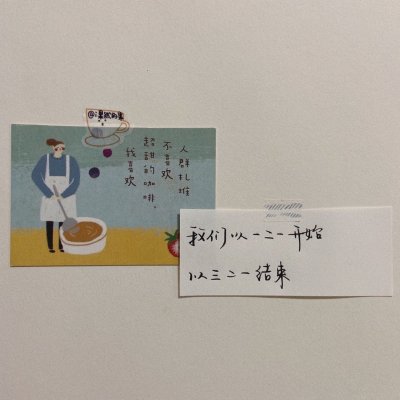 人群扎堆
不喜欢
超甜的咖啡。
我喜欢
我们以一二一开始
以三二一结束